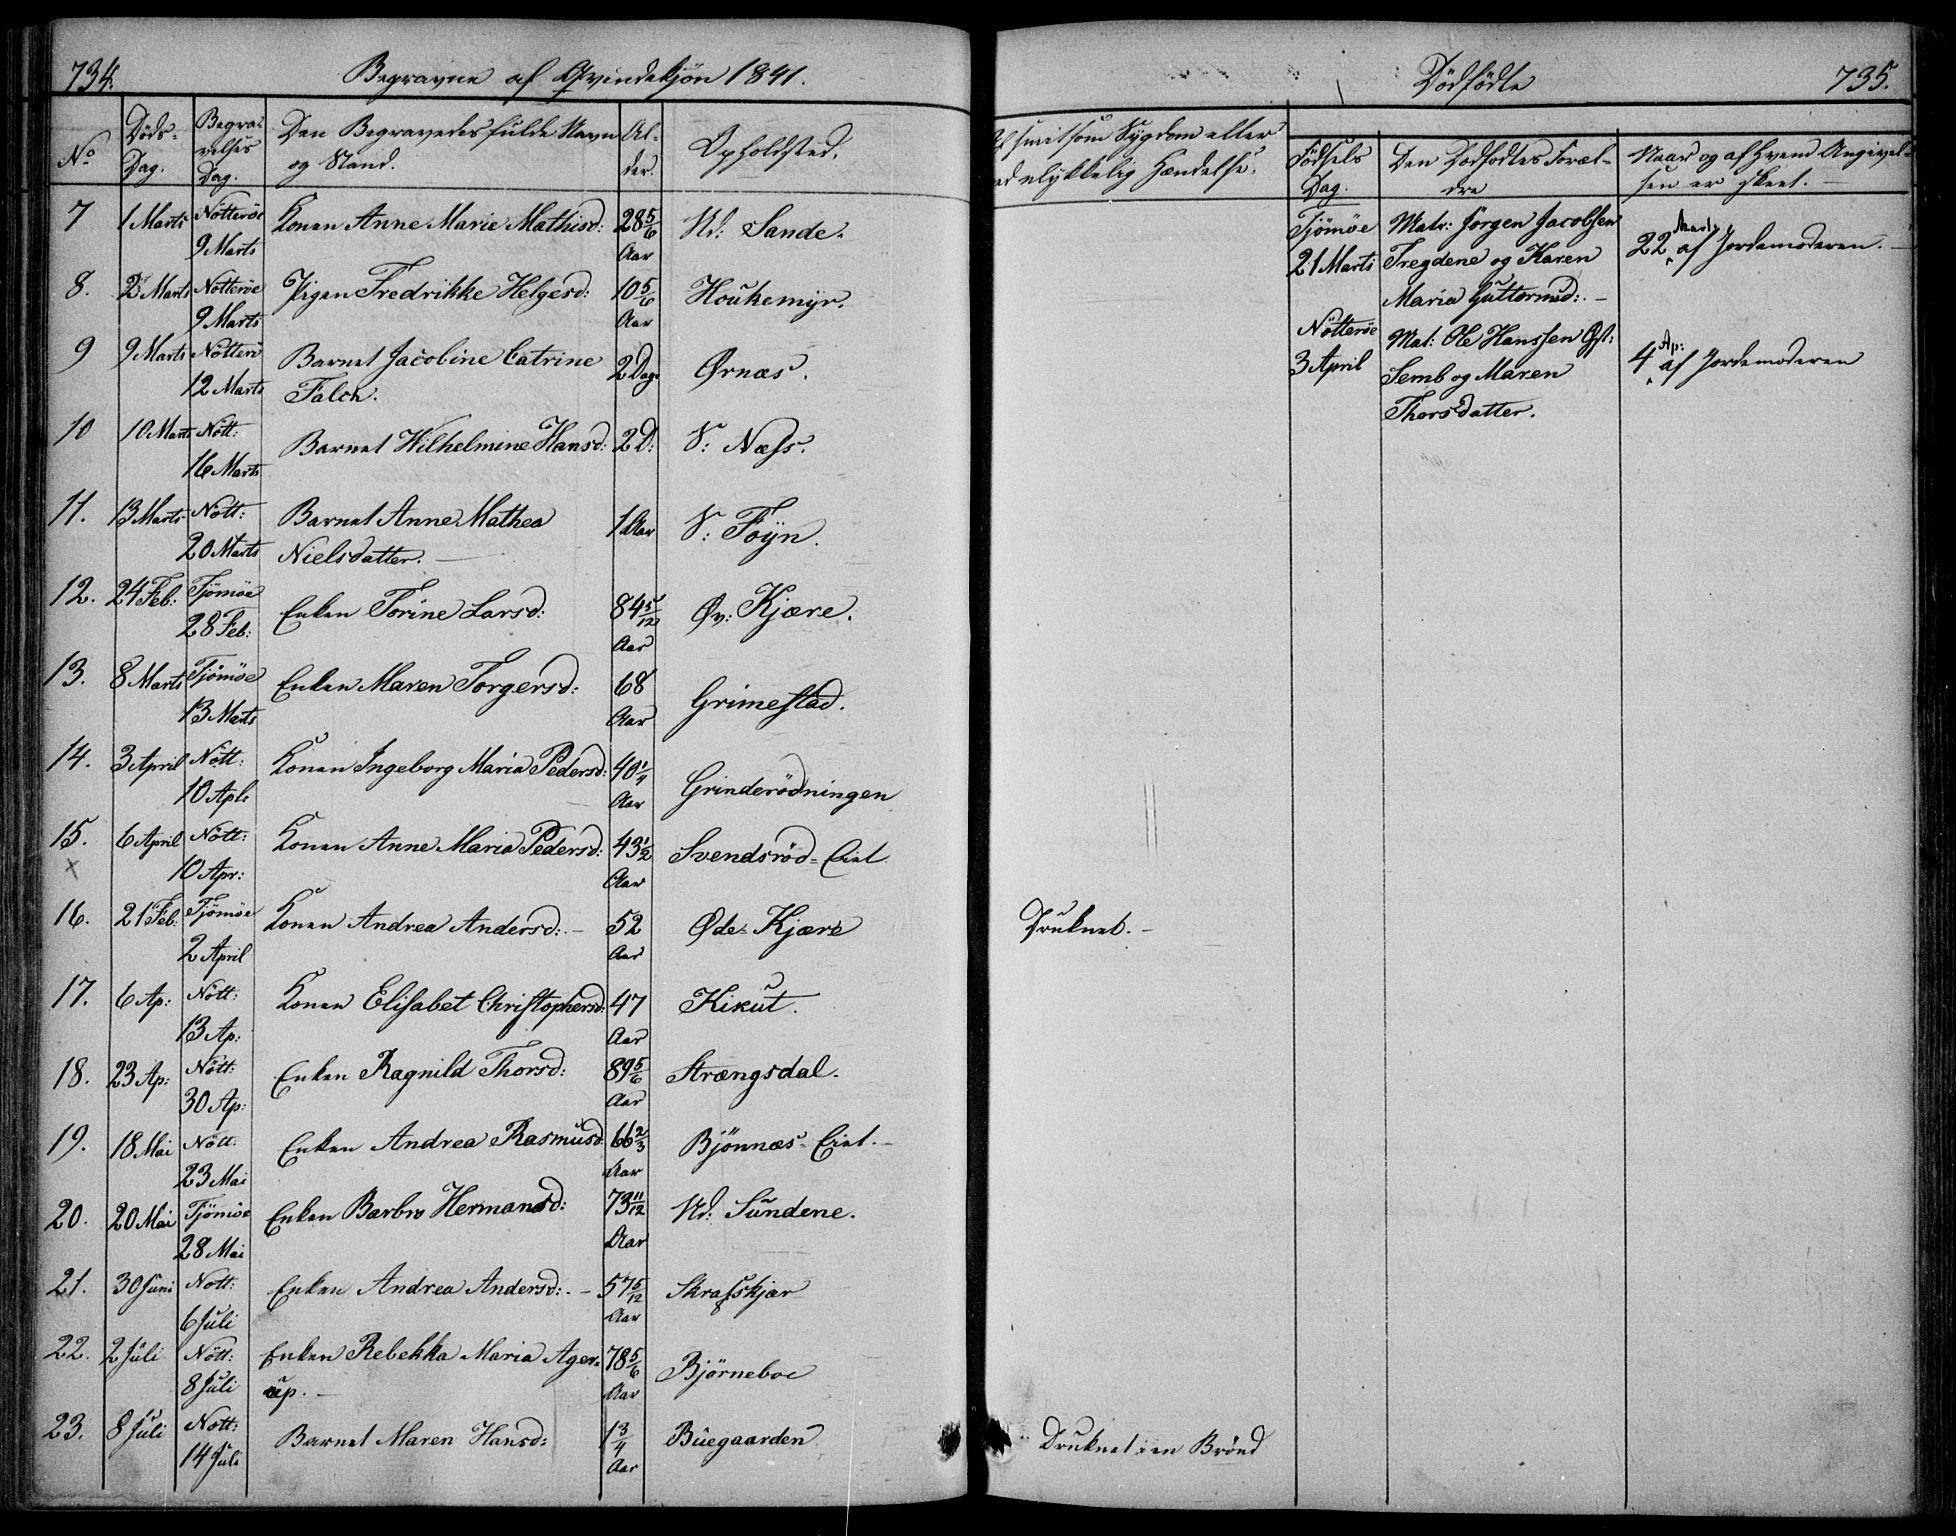 734.
Begravne af Qvindekjön 1841.
No
Döds-
Dag.
Begra-
velses
Dag.
Den Begravedes fulde Navn
og Stand.
Al-
der.
Opholdsted.
7 1 Marts Nötteröe Konen Anne Marie Mathisd: 28 5/6 Nd: Sande.
9 Marts Aar
8. 2 Marts Nötteröe Pigen Fredrikke Helgesd: 10 5/6 Houkemyr.
9 Marts Aar
9 9 Marts Nötterö Barnet Jacobine Catrine 2 Dage Ørnæs.
12 Marts Falch.
10 10 Marts Nött: Barnet Wilhelmine Hansd: 2 D: V: Næss.
16 Marts
11. 13 Marts Nött: Barnet Anne Mathea 1 Aar V: Föyn.
20 Marts Nielsdatter. —
12. 24 Feb: Tjömöe Enken Torine Larsd: 84 5/12 Øv: Kjære.
28 Feb: Aar
13. 8 Marts Tjömöe Enken Maren Torgersd: 68 Grimestad.
13 Marts Aar
14. 3 April Nött: Konen Ingeborg Maria Pedersd: 40 1/4 Grinderödningen
10 Apl: Aar
15. 6 April Nött: Konen Anne Maria Pedersd: 43 1/2 Svendsröd-Eiet
x 10 Apr: Aar
16. 21 Feb: Tjömöe Konen Andrea Andersd: — 52 Øde-Kjære
2 April Aar
17. 6 Ap: Nött: Konen Elisabet Christophersd: 47 Kikut.
13 Ap: Aar
18. 23 Ap: Nött: Enken Ragnild Thorsd: 89 5/6 Strængsdal.
30 Ap: Aar
19. 18 Mai Nött: Enken Andrea Rasmusd 66 2/3 Bjönnæs-Eiet. —
23 Mai Aar
20. 20 Mai Tjömöe Enken Barbro Hermansd: 73 11/12 Nd: Sundene.
28 Mai Aar
21. 30 Juni Nott: Enken Andrea Andersd: — 57 5/12 Skrafskjær
6 Juli Aar
22. 2 Juli Nött: Enken Rebekka Maria Ager- 78 5/6 Bjørneboe
8 Juli up. — Aar
23. 8 Juli Nott: Barnet Maren Hansd: 1 3/4 Buegaarden
14 Juli Aar
Dödfödte
735.
smitsom Sygdom eller
ulykkelig Hændelse.
Födsels
Dag.
Den Dödfödtes Foræl-
dre
Naar og af Hvem Angivel-
sen er skeet. —
Tjömöe Matr: Jörgen Jacobsen Marts
21 Marts Tregdene og Karen 22 af Jordemoderen. —
Maria Guttormsd: —
Nötteröe Mat: Ole Hanssen Øst: Ap:
3 April Semb og Maren 4 af Jordemoderen
Thorsdatter.
Druknet. —
Druknet i en Brönd